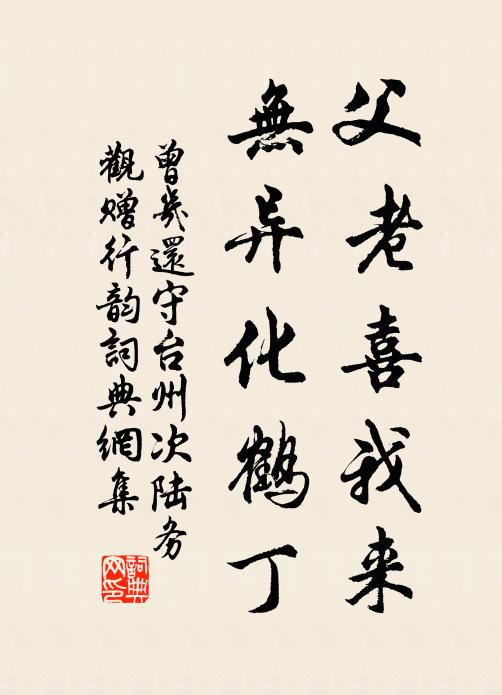 父老喜我来
無异化鹤丁
曾幾還守台州次陆务
觀赠行韵詞典網集
詞典网印